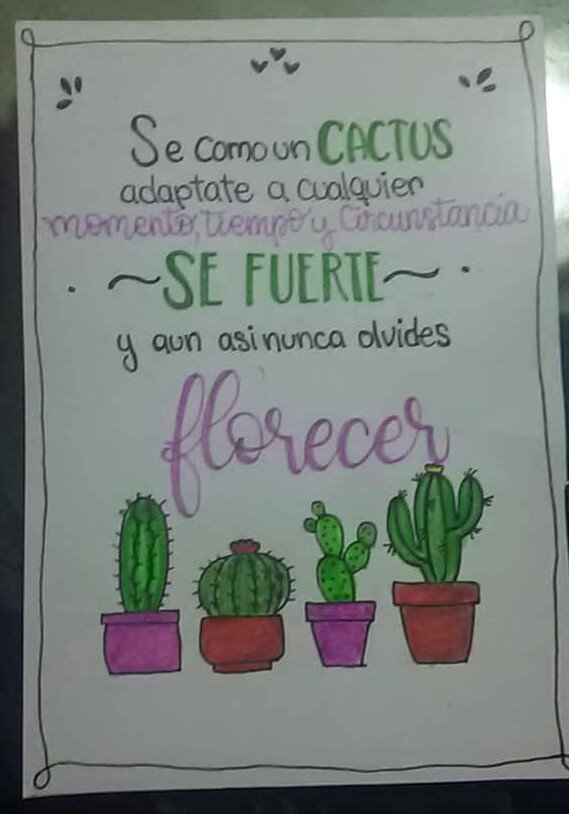 Se como un CACTUS
adaptate a cualquier
momento, tiempo y Circunstancia
SE FUERTE
y aun asi nunca olvides
florecer